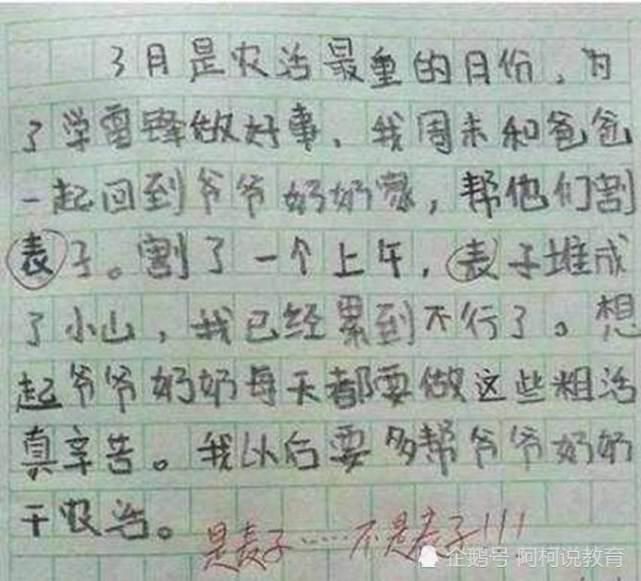 3月是农活最重的月份，为
了学雷锋做好事，我周末和爸爸
一起回到爷爷奶奶家，帮他们割
表子。割了一个上午，表子堆成
了小山，我已经累到不行了。想
起爷爷奶奶每天都要做这些粗活
真辛苦。我以后要多帮爷爷奶奶
干农活。
是麦子……不是表子!!!
企鹅号 阿柯说教育